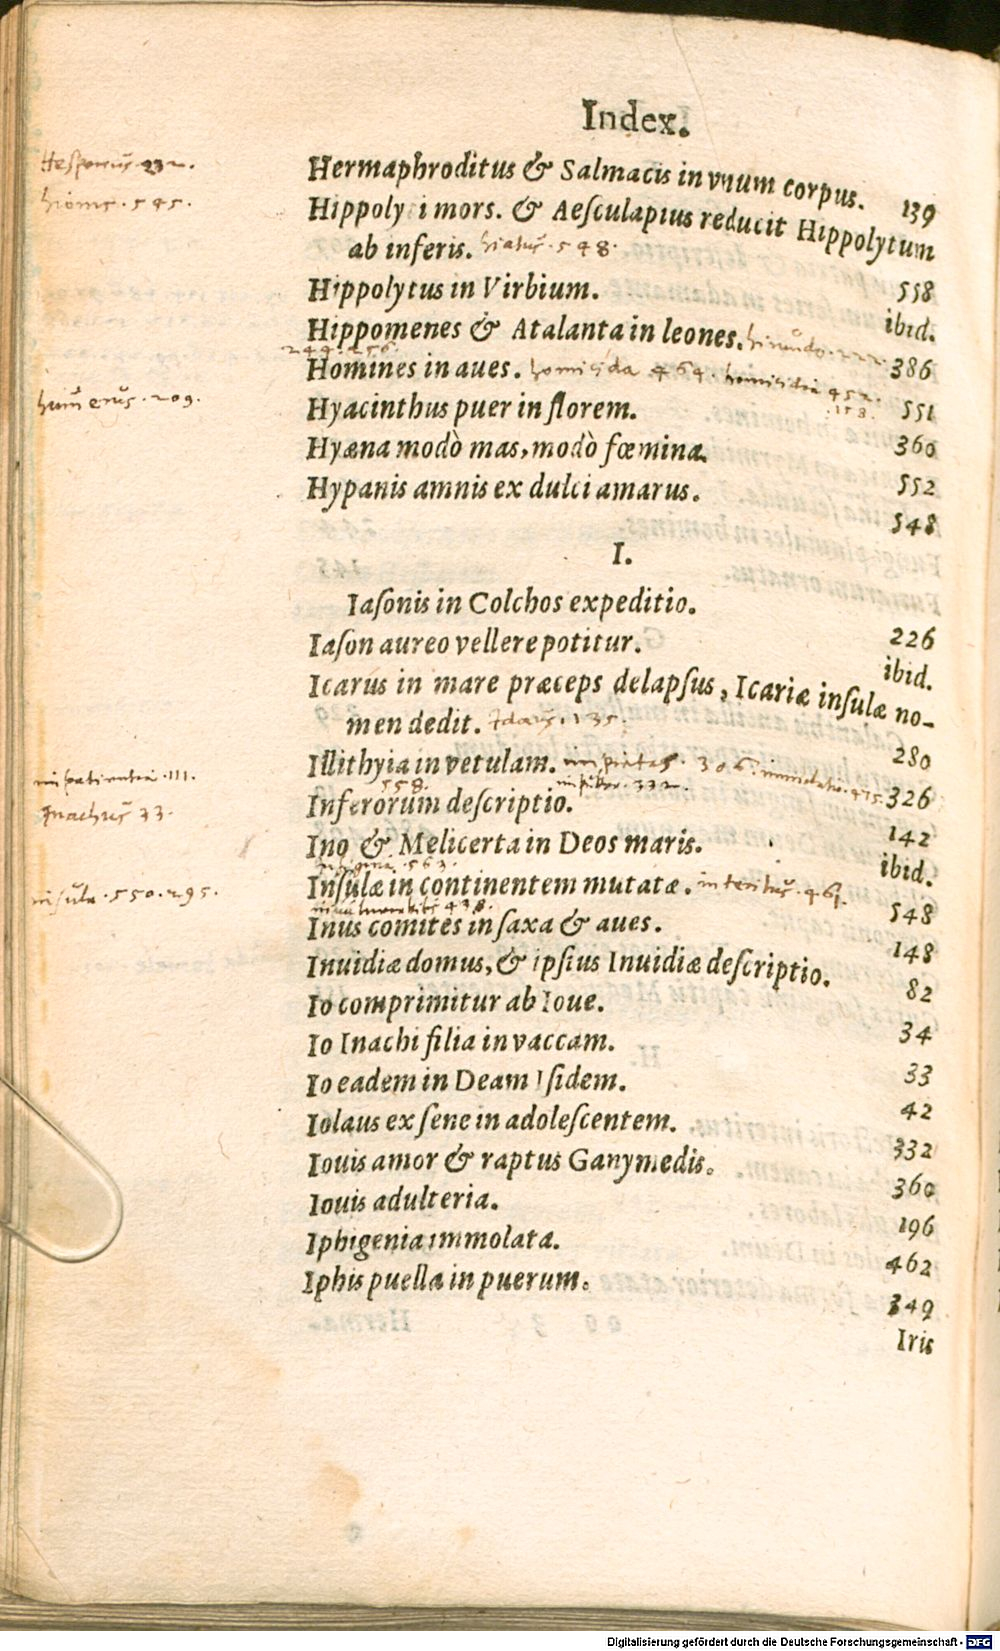 Index.
Hermaphroditus & Salmacis in vnum corpus. 139
Hippolyti mors. & Aesculapius reducit Hippolytum
ab inferis. hiatus . 548. 558
Hippolytus in Virbium. ibid.
Hippomenes & Atalanta in leones. hirundo . 222. 386
244. 256.
Homines in aues. homicida 464. homicidia 452. 551
. 158.
humerus . 209.
Hyacinthus puer in florem. 360
Hyæna modò mas, modò fœmina. 552
Hypanis amnis ex dulci amarus. 548
Hesperus 232.
hiems . 545.
I.
Iaſonis in Colchos expeditio. 226
Iaſon aureo vellere potitur. ibid.
Icarus in mare præceps delapſus, Icariæ inſulæ no-
men dedit. 135. 280
Illithyia in vetulam. impietas . 306. 326
558. 332.
impatientia . 111.
Inachus 33.
Inferorum deſcriptio. 142
Ino & Melicerta in Deos maris. ibid.
563.
insula . 550. 295.
Inſulæ in continentem mutatæ. interitus . 461. 548
438.
Inus comites in ſaxa & aues. 148
Inuidiæ domus, & ipſius Inuidiæ deſcriptio. 82
Io comprimitur ab Ioue. 34
Io Inachi filia in vaccam. 33
Io eadem in Deam Iſidem. 42
Iolaus ex ſene in adoleſcentem. 332
Iouis amor & raptus Ganymedis. 360
Iouis adulteria. 196
Iphigenia immolata. 462
Iphis puella in puerum. 349
Iris
Digitalisierung gefördert durch die Deutsche Forschungsgemeinschaft - DFG